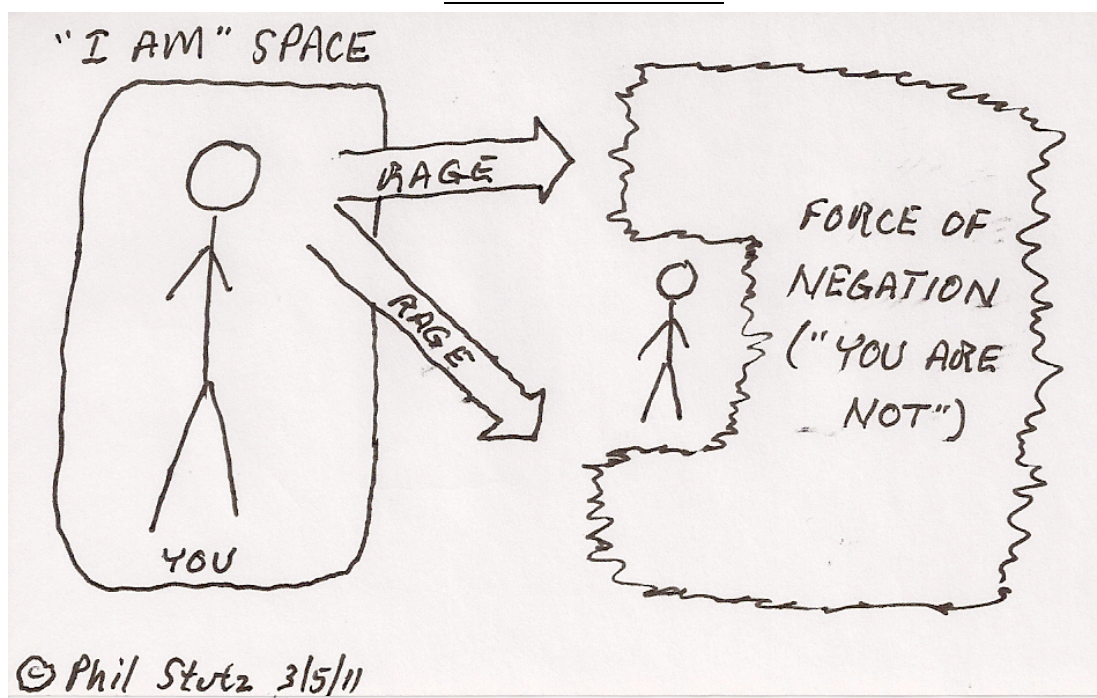 "I AM" SPACE
RAGE
RAGE
FORCE OF
NEGATION
("YOU ARE
NOT")
YOU
© Phil Stutz 3/5/11